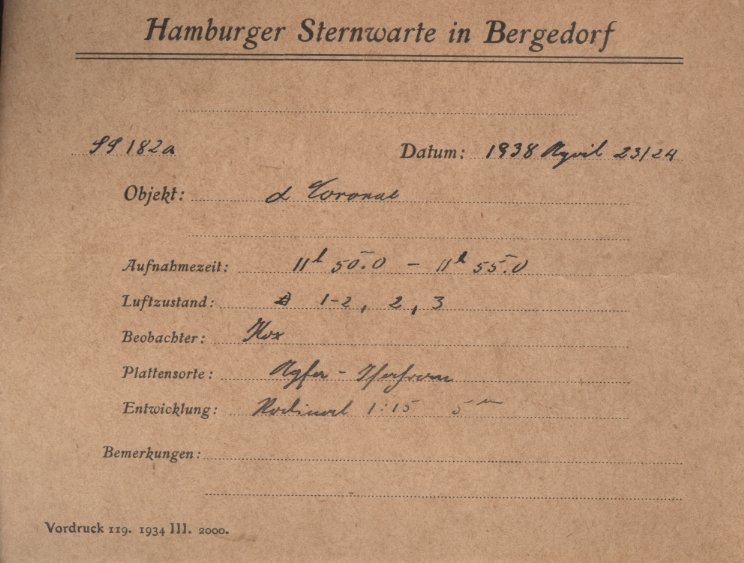 Hamburger Sternwarte in Bergedorf
SS 182a Datum: 1938 April 23/24
Objekt: α Coronae
Aufnahmezeit: 11h 50.0 - 11h 55.0
Luftzustand: 1-2, 2, 3
Beobachter:
Plattensorte: Agfa -
Entwicklung: Rodinal 1:15 5m
Bemerkungen:
Vordruck 119. 1934 III. 2000.